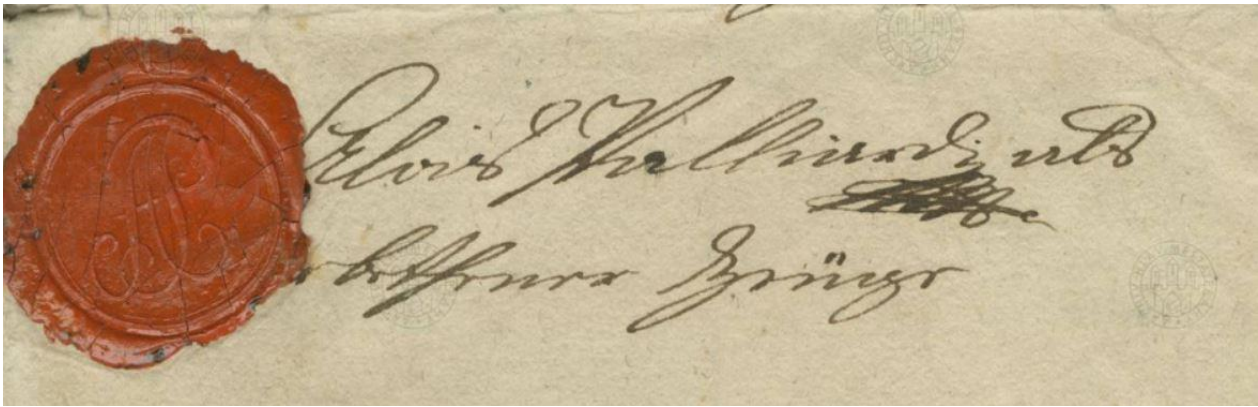 Alois Palliardi als
erbethener Zeüge